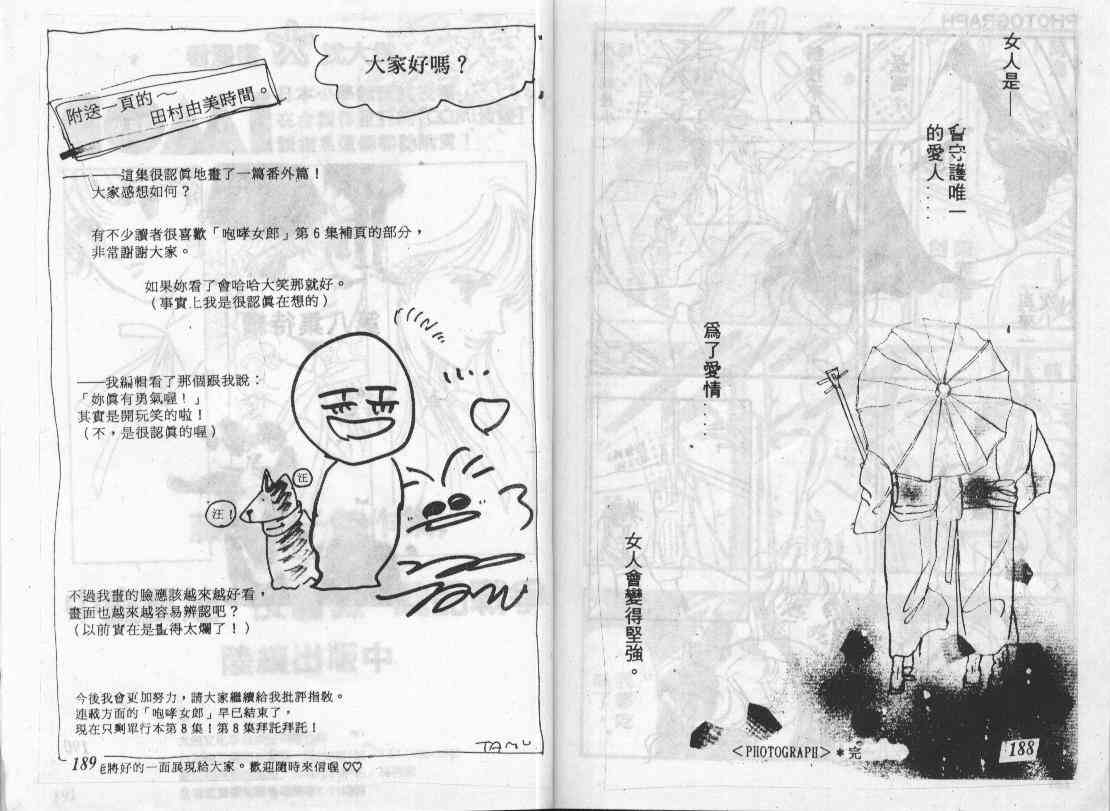 女人是──
會守護唯一
的愛人.....
爲了愛情....
女人會變得堅強。
<PHOTOGRAPH>＊完
188
大家好嗎？
附送一頁的～
田村由美時間。
──這集很認眞地畫了一篇番外篇！
大家感想如何？
有不少讀者很喜歡「咆哮女郎」第６集補頁的部分，
非常謝謝大家。
如果妳看了會哈哈大笑那就好。
（事實上我是很認眞在想的）
──我編輯看了那個跟我說：
「妳眞有勇氣喔！」
其實是開玩笑的啦！
（不，是很認眞的喔）
汪
汪！
不過我畫的臉應該越來越好看，
畫面也越來越容易辨認吧？
（以前實在是畫得太爛了！）
今後我會更加努力，請大家繼續給我批評指教。
連載方面的「咆哮女郎」早已結束了，
現在只剩單行本第８集！第８集拜託拜託！
TAMU
189
將好的一面展現給大家。歡迎隨時來信喔♡♡